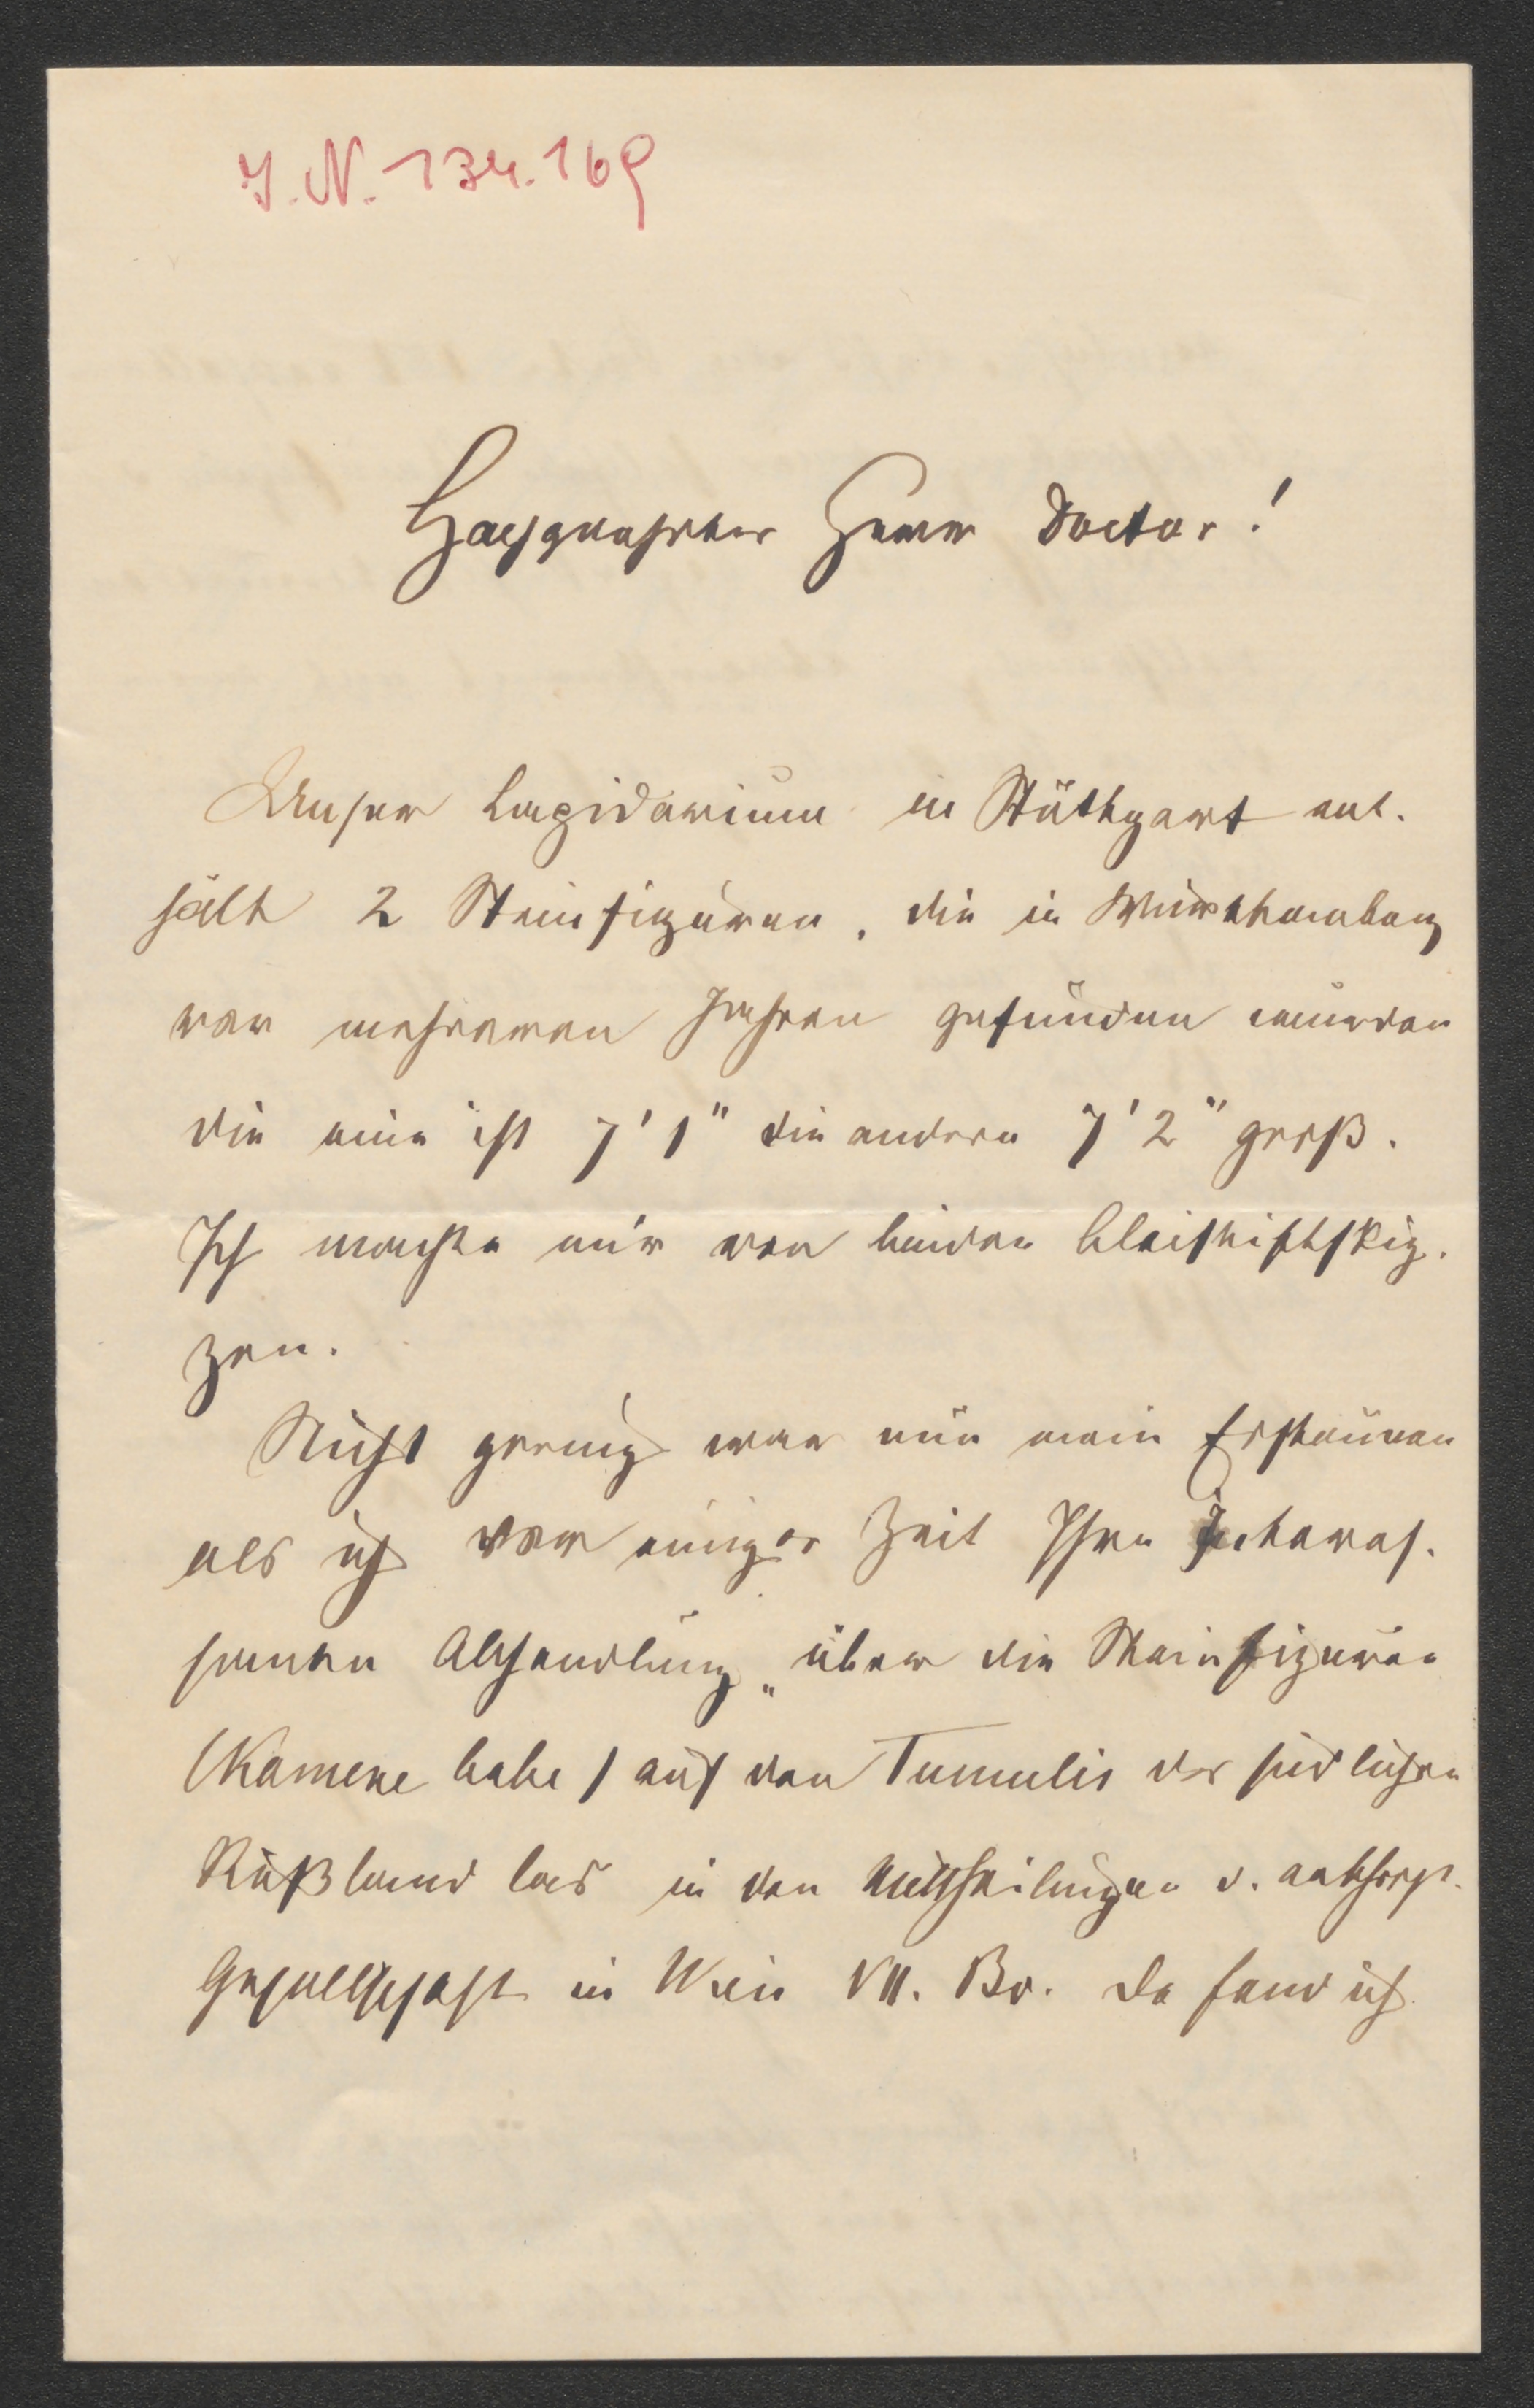 I. N. 134.169
Hochgeehrter Herr Doctor!
Unser Lapidarium in Stuttgart ent-
hält 2 Steinfiguren, die in Württemberg
vor mehreren Jahren gefunden wurden
die eine ist 7' 1" die andere 7' 2" groß.
Ich machte mir von beiden Bleistiftskiz-
zen.
Nicht gering war nun mein Erstaunen
als ich vor einiger Zeit Ihre interes-
santen Abhandlung „über die Steinfiguren
(Kamene babe) auf den Tumulis des südlichen
Rußland las in den Mittheilungen d. anthrop.
Gesellschaft in Wien VII. Bd. Da fand ich